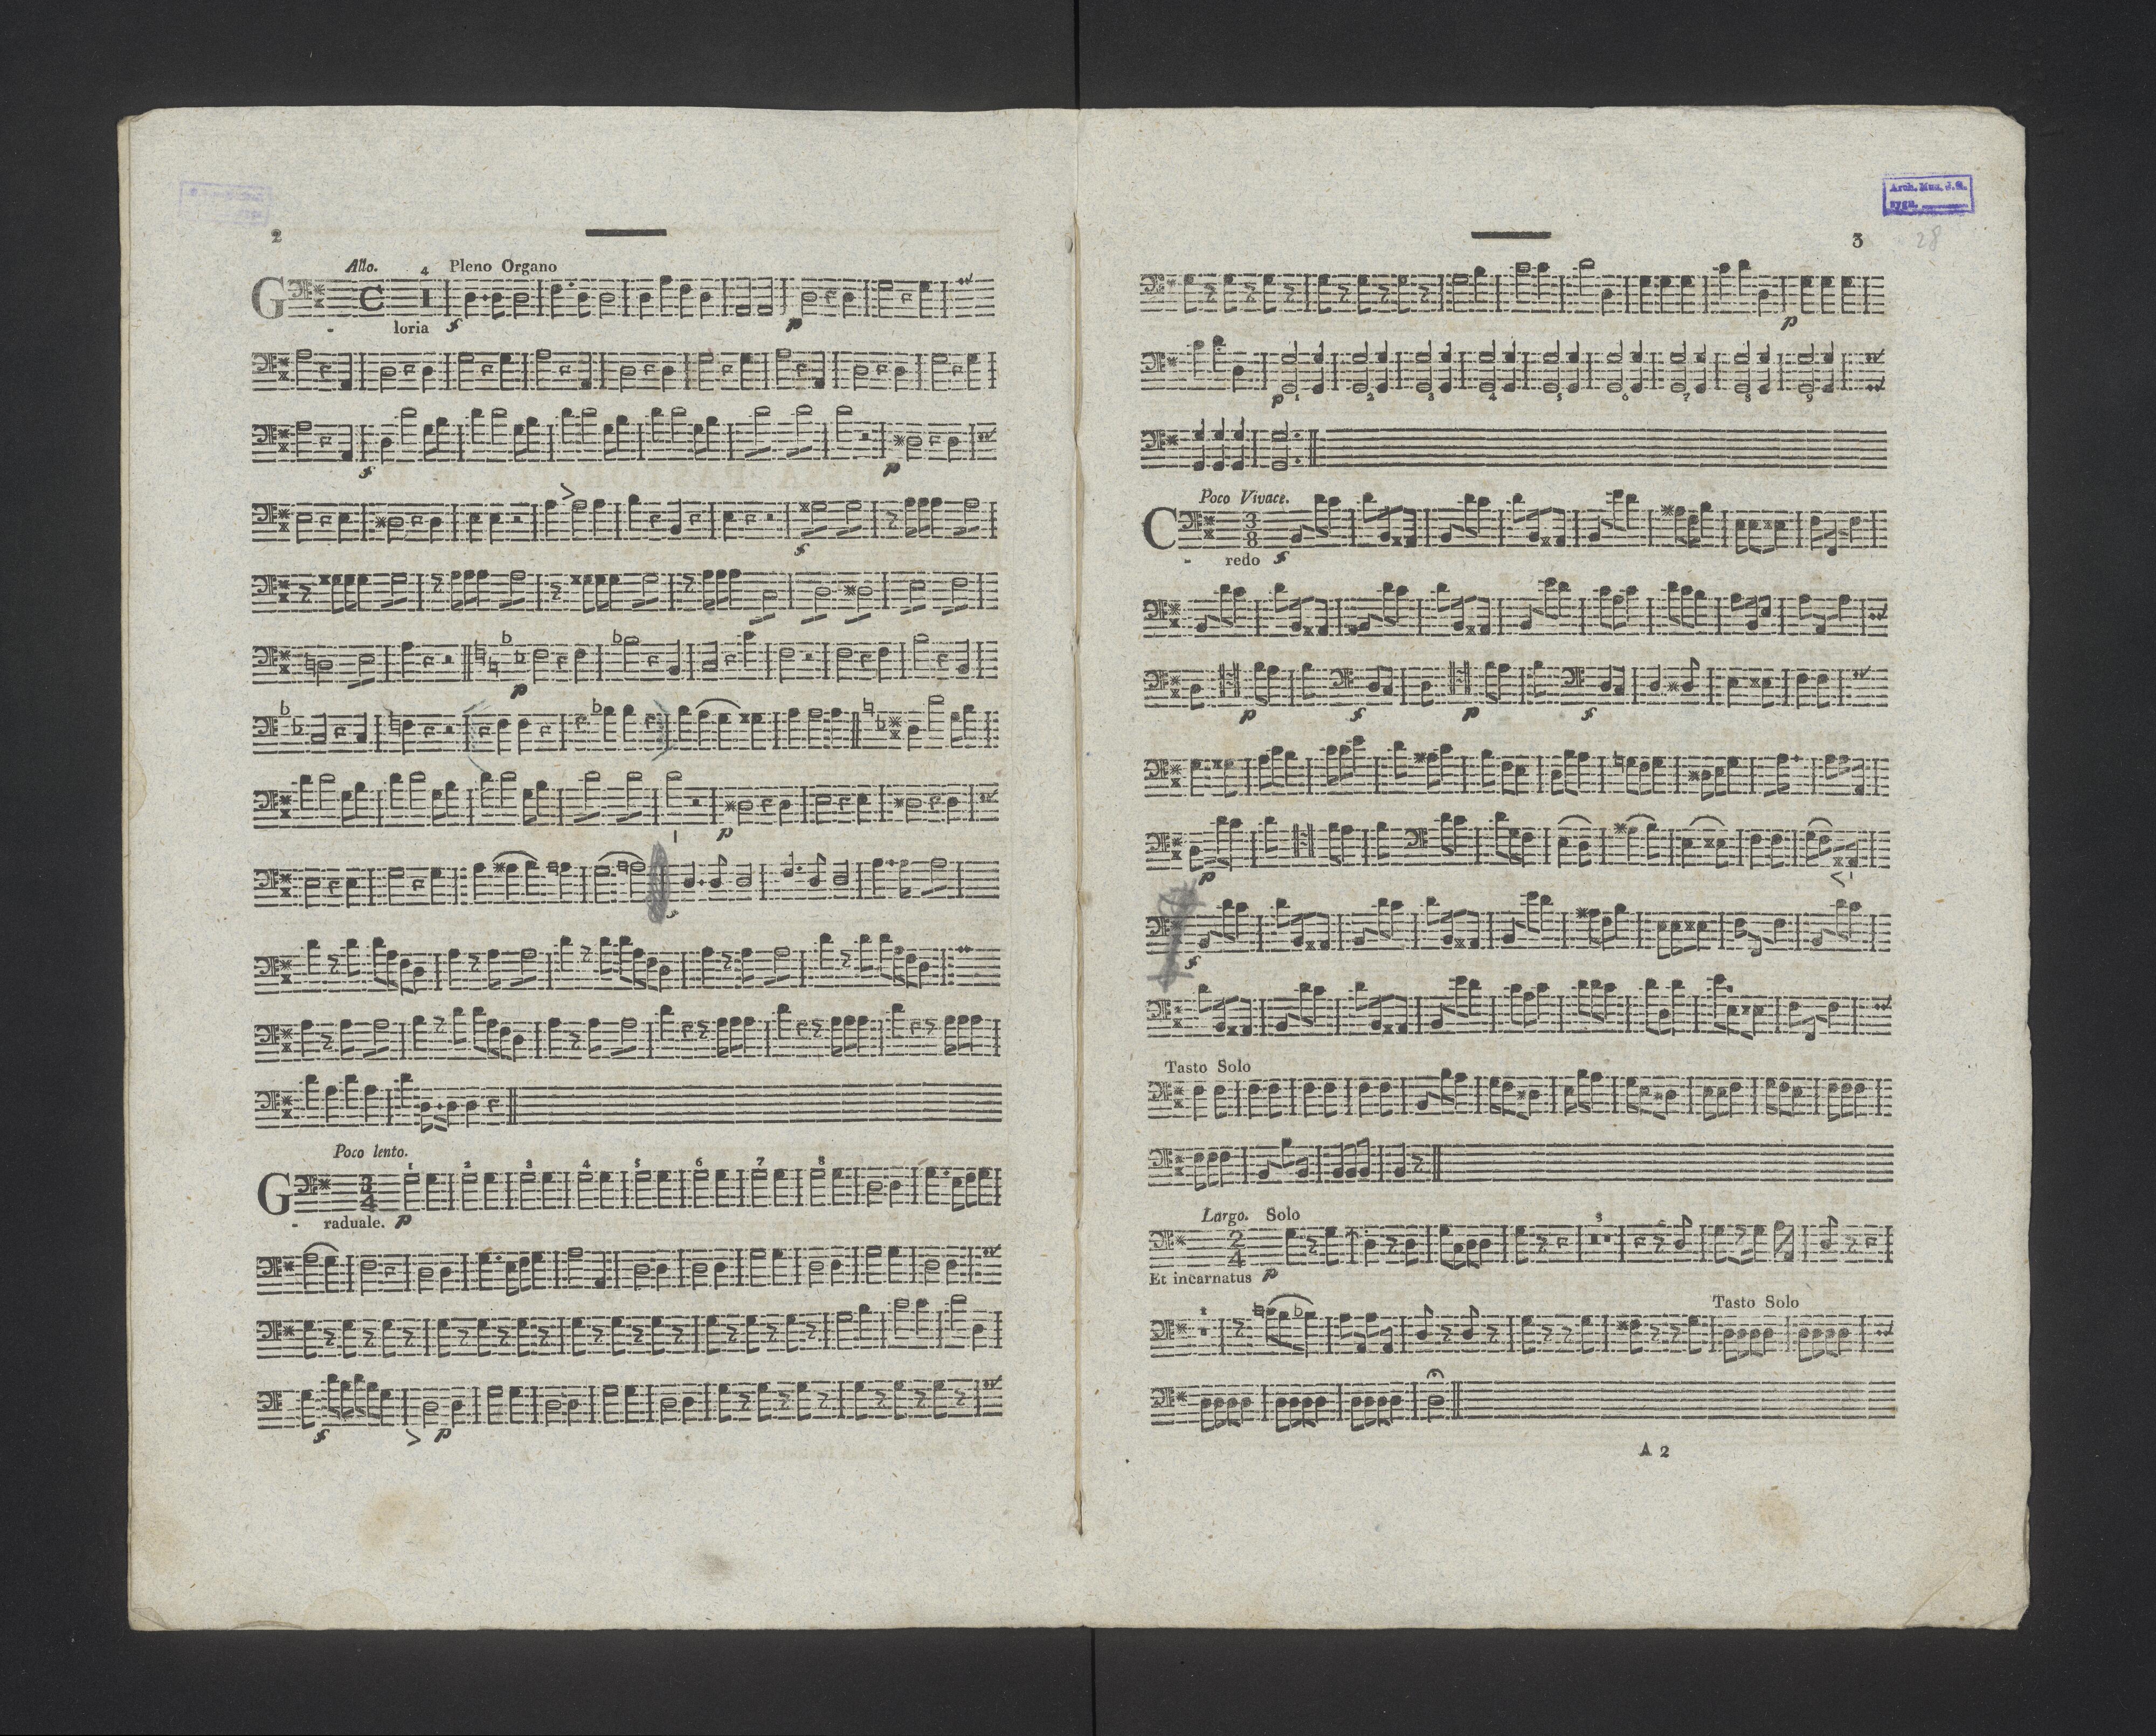 2
Allo. 4 Pleno Organo
G
- loria f p
f p
f
p
p
Poco lento.
1 2 3 4 5 6 7 8
G 3 4
- raduale. p
f p
Arch. Muz. J. G.
sygn.
3 28
p
p 1 2 3 4 5 6 7 8 9
Poco Vivace.
C 3 8
- redo f
p f p f
p
f
Tasto Solo
Largo. Solo
2 4 3
Et incarnatus p
Tasto Solo
A 2